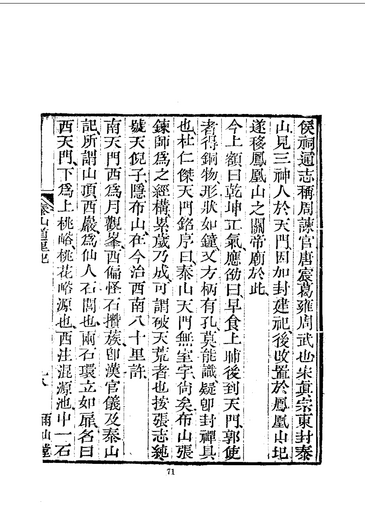 侯祠通志稱周諫官唐宸葛雍周武也宋真宗東封泰
山見三神人於天門因加封建祀後改置於鳳凰山圮
遂移鳳凰山之關帝廟於此
今上額曰乾坤正氣應劭曰早食上晡後到天門郭使
者得銅物形狀如鐘又方柄有孔莫能識疑卽封禪具
也杜仁傑天門銘序曰泰山天門無室宇尚矣布山張
鍊師爲之經構累歲乃成可謂破天荒者也按張志純
號天倪子隱布山在今治西南八十里許
南天門西爲月觀峯西偏怪石攢簇卽漢官儀及泰山
記所謂山頂西巖爲仙人石閭也兩石裏立如扉名曰
西天門下爲上桃峪桃花峪源也西注混源池中一石
泰山道里記
71